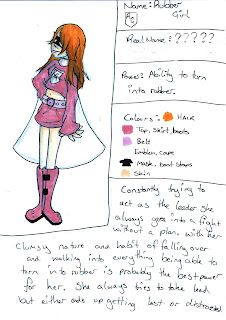 Name: Rubber
Girl
Real Name: ?????
Power: Ability to turn
into rubber.
Colours: Hair
Top, skirt, boots
Belt
Emblem, cape
Mask, boot straps
Skin
Constantly trying to
act as the leader she
always goes into a fight
without a plan. With her
clumsy nature and habit of falling over
and walking into everything being able to
turn into rubber is probably the best power
for her. She always tries to take lead
but either ends up getting lost or distracted